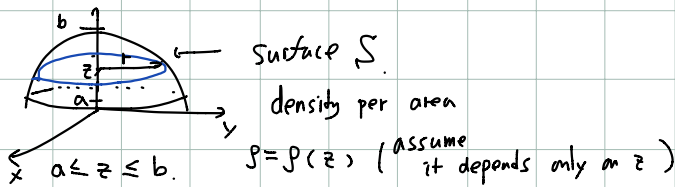 b
r
z
a
y
x
surface S.
density per area
ρ = ρ(z) (assume it depends only on z)
a ≤ z ≤ b.